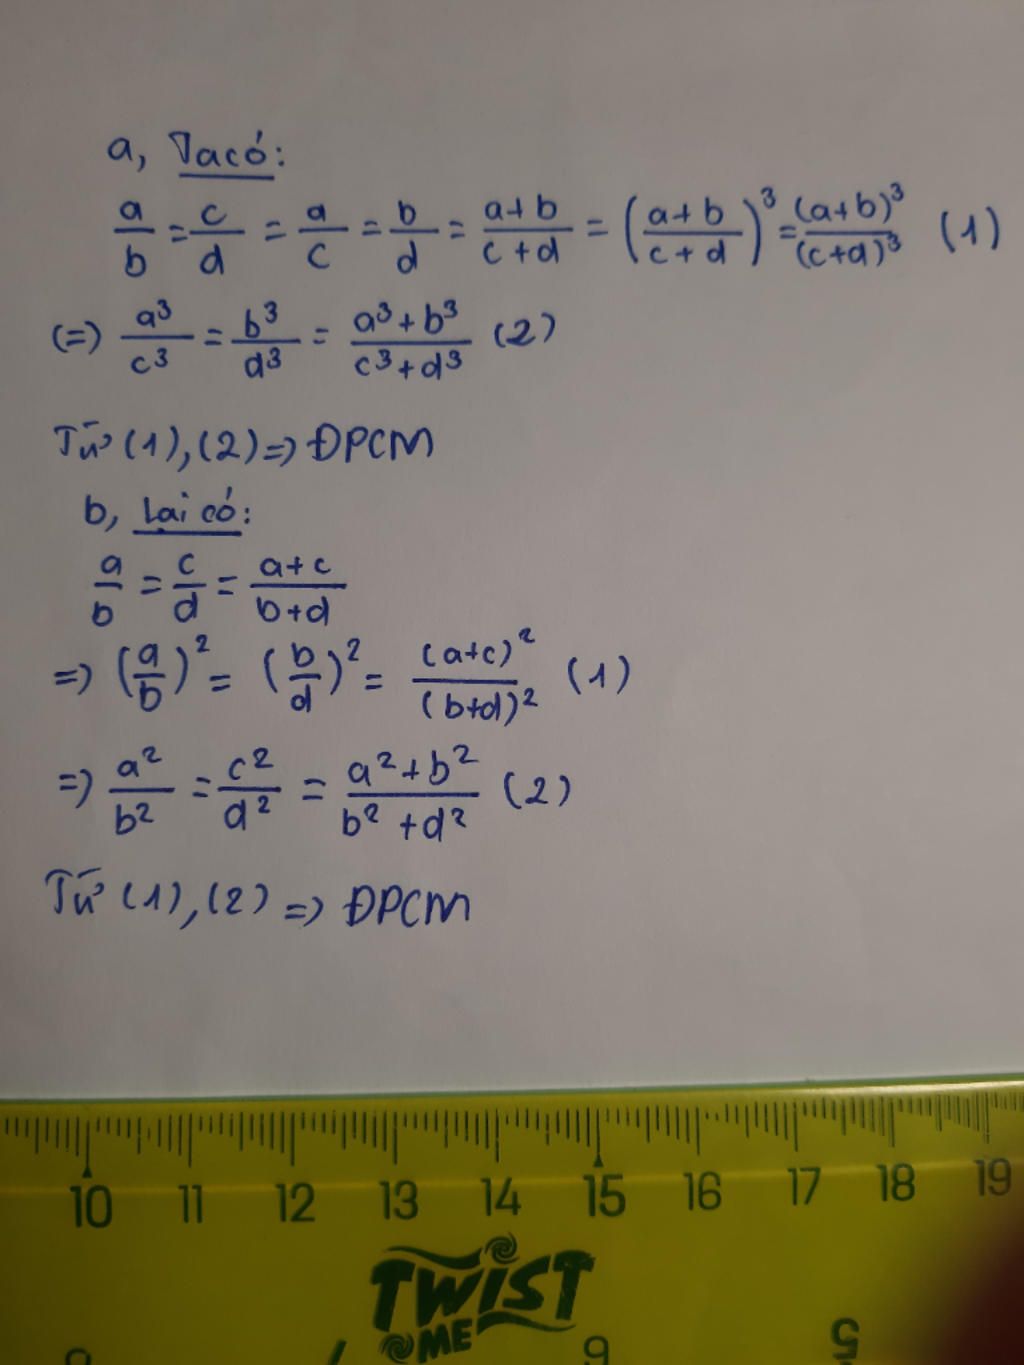 a, Ta có:
a/b = c/d = a/c = b/d = a+b/c+d = (a+b/c+d)³ = (a+b)³/(c+d)³ (1)
(=) a³/c³ = b³/d³ = a³+b³/c³+d³ (2)
Từ (1), (2) => ĐPCM
b, Lại có:
a/b = c/d = a+c/b+d
=> (a/b)² = (b/d)² = (a+c)²/(b+d)² (1)
=> a²/b² = c²/d² = a²+b²/b²+d² (2)
Từ (1), (2) => ĐPCM
10 11 12 13 14 15 16 17 18 19
TWIST
ME
6 5